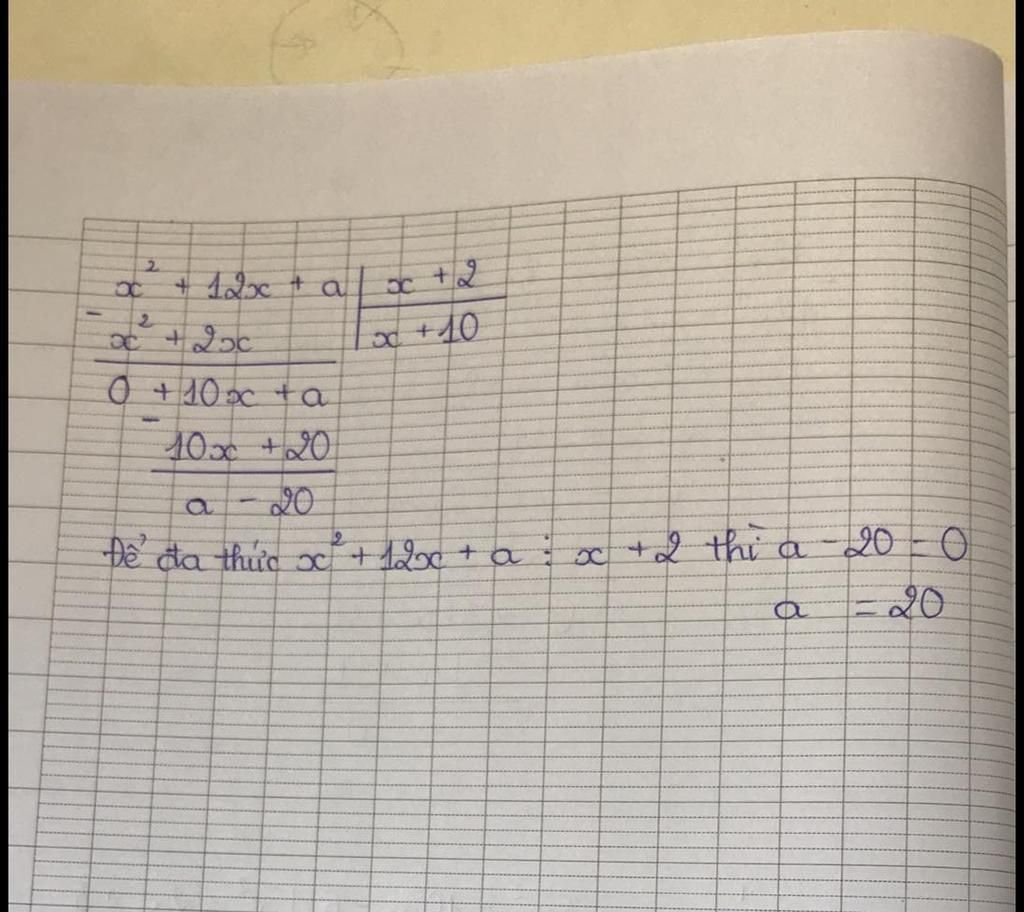 x² + 12x + a | x + 2
- x² + 2x | x + 10
0 + 10x + a
- 10x + 20
a - 20
Để đa thức x² + 12x + a ⋮ x + 2 thì a - 20 = 0
a = 20